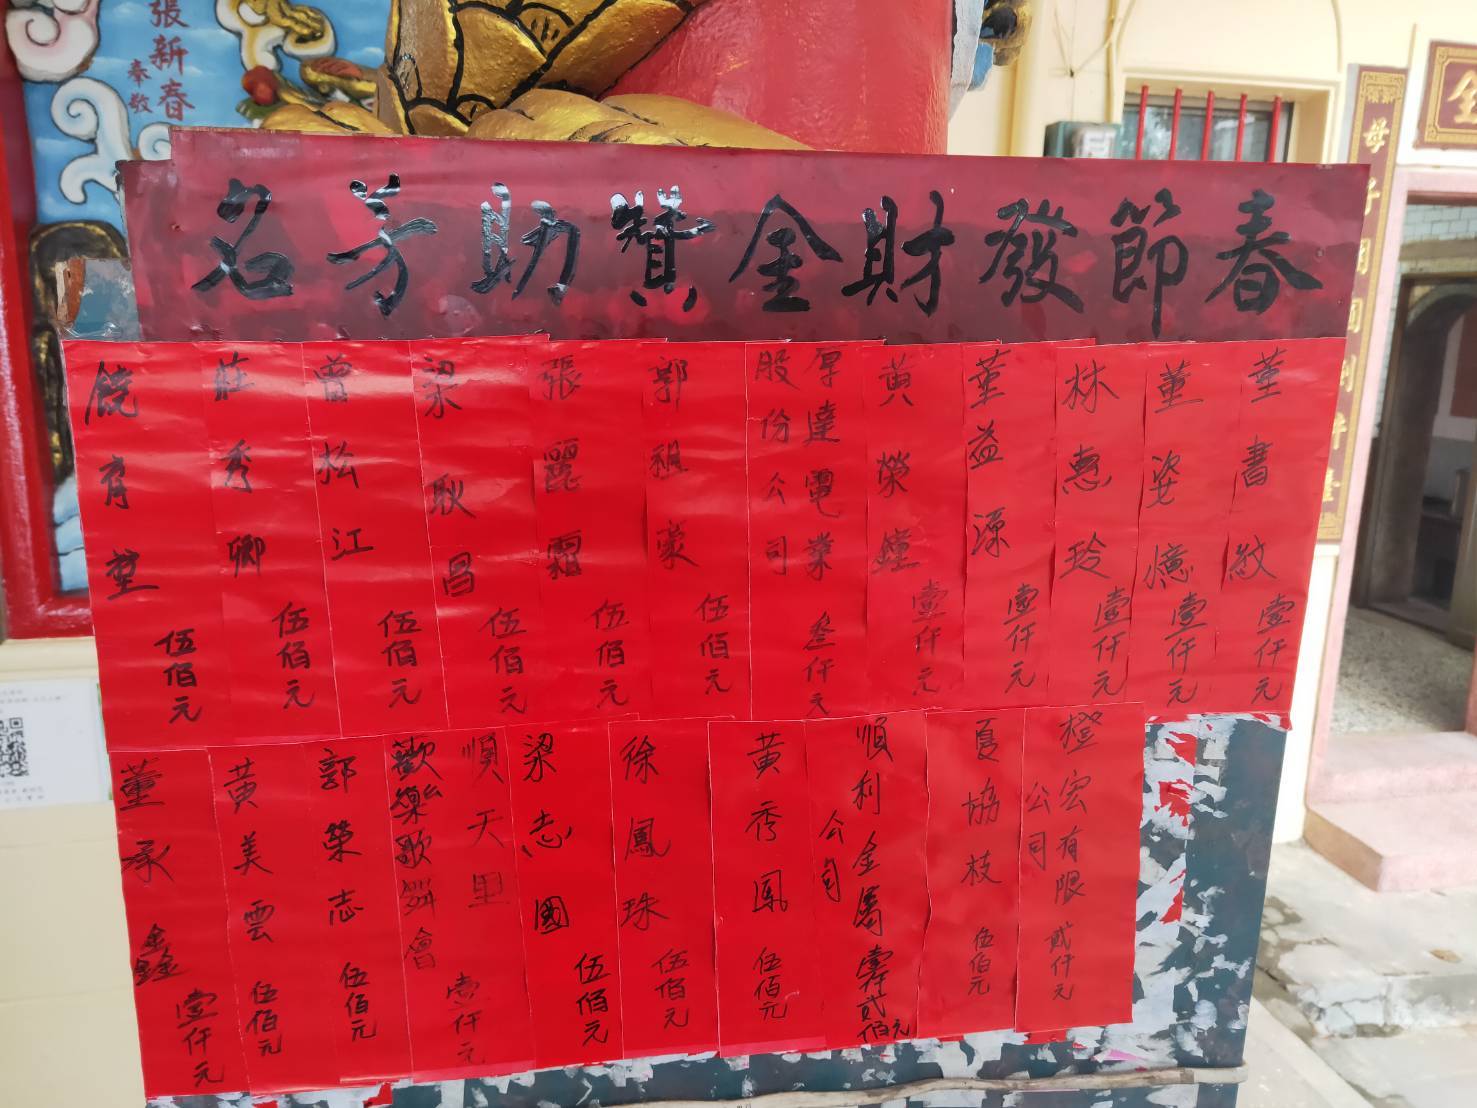 春節發財金贊助芳名
董書紋 壹仟元
董姿憶 壹仟元
林惠玲 壹仟元
董益源 壹仟元
黄榮鐘 壹仟元
厚達電業股份公司 叁仟元
郭祖豪 伍佰元
張麗霜 伍佰元
梁耿昌 伍佰元
曾松江 伍佰元
莊秀卿 伍佰元
饒育堃 伍佰元
橙宏有限公司 貳仟元
夏協枝 伍佰元
順利金屬公司 壹仟貳佰元
黃秀鳳 伍佰元
徐鳳珠 伍佰元
梁志國 伍佰元
順天里歡樂歌舞會 壹仟元
郭榮志 伍佰元
黃美雲 伍佰元
董承鑫 壹仟元
張新春
奉敬